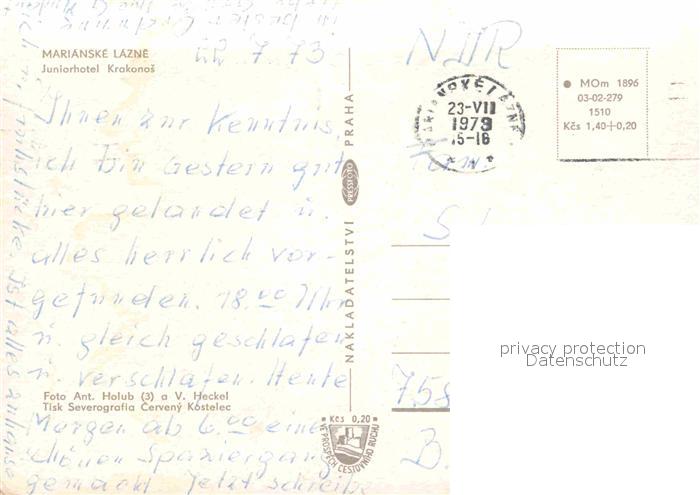 MARIÁNSKÉ LÁZNĚ
Juniorhotel Krakonoš
22 7. 73
Ihnen zur Kenntnis,
ich bin Gestern gut
hier gelandet u.
alles herrlich vor-
gefunden. 18.00 Uhr
u. gleich geschlafen
u. verschlafen. Heute
Foto Ant. Holub (3) a V. Heckel
Tisk Severografia Červený Kostelec
Morgen ab 6.00 eine
schönen Spaziergang
gemacht. Jetzt schreibe
ich
frühstücke. Ist alles
NAKLADATELSTVÍ PRESSFOTO PRAHA
Kčs 0,20
VE PROSPĚCH CESTOVNÍHO RUCHU
NDR
MARIÁNSKÉ LÁZNĚ
23-VII
1973
15-16
MOm 1896
03-02-279
1510
Kčs 1,40+0,20
S
758
B.
privacy protection
Datenschutz